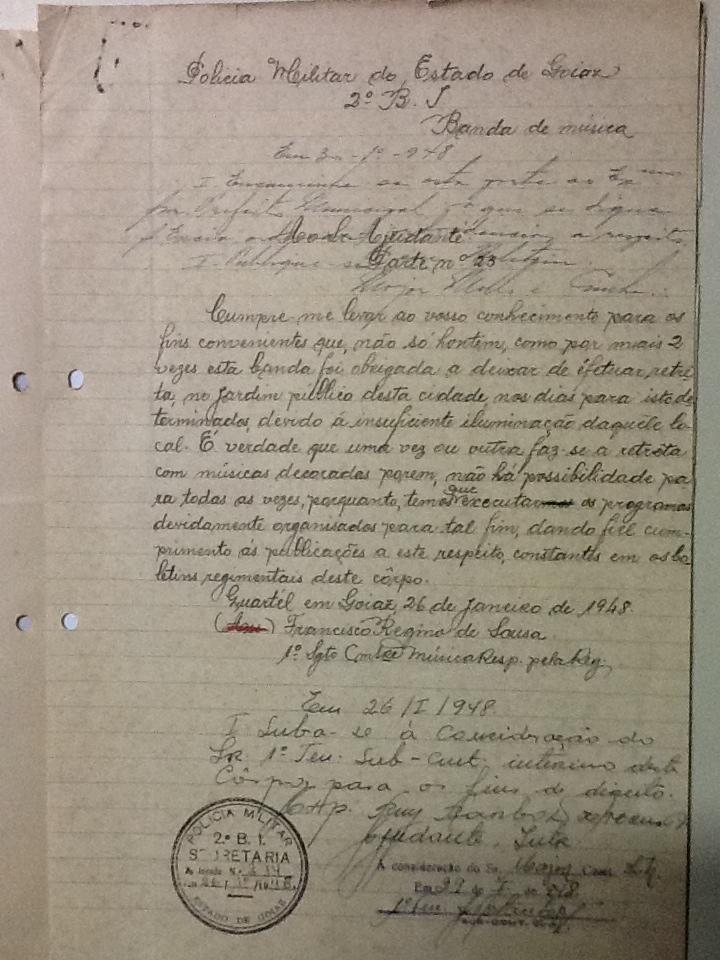 Policia Militar do Estado de Goiaz
2º B. I
Banda de música
Em 30-1º-948
I Encaminhe-se esta parte ao Exmo
Prefeito Municipal
a respeito
Ao Sr. Ajudante
I Publique-se
Parte nº 23
Major
Cumpre-me levar ao vosso conhecimento para os
fins convenientes que, não só hontem, como por mais 2
vezes esta banda foi obrigada a deixar de efetuar, retrê-
ta, no jardim publico desta cidade, nos dias para isto de
terminados, devido á insuficiente iluminação daquele lo-
cal. É verdade que uma vez ou outra faz-se a retrêta
com músicas decoradas porem, não há possibilidade pa
ra todas as vezes, porquanto, temos que executar os programas
devidamente organisados para tal fim, dando fiel cum-
primento ás publicações a este respeito, constantes em os bo
letins regimentais deste côrpo.
Quartel em Goiaz, 26 de Janeiro de 1948.
Francisco Regino de Sousa
1º Sgto Música Resp. pela Reg.
Em 26/I/948
I Suba-se à consideração do
Sr. 1º Ten. Sub-Cmt. interino deste
Côrpo, para os fins de direito.
Cap. Ruy
Ajudante, Int.
POLICIA MILITAR
2º B. I.
SECRETARIA
ESTADO DE GOIAZ
A consideração do Sr. Major Cmt.
Em de I de 948
1º Ten.
SUB-CMT.